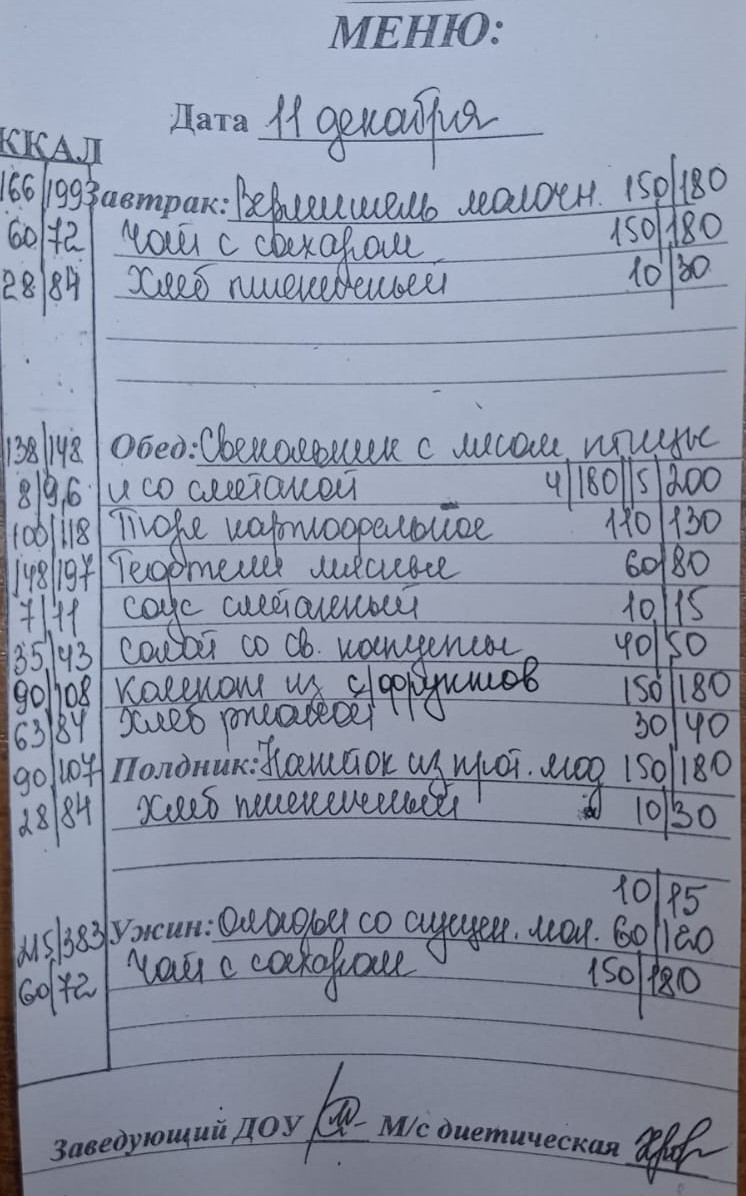 МЕНЮ:
Дата 11 декабря
ККАЛ
166/199 Завтрак: Вермишель молочн. 150/180
60/72 Чай с сахаром 150/180
28/84 Хлеб пшеничный 10/30
138/148 Обед: Свекольник с мясом птицы
8/9,6 и со сметаной 4/180/5/200
100/118 Пюре картофельное 110/130
148/197 Тефтели мясные 60/80
7/11 соус сметанный 10/15
35/43 салат со св. капусты 40/50
90/108 компот из с/фруктов 150/180
63/84 Хлеб ржаной 30/40
90/107 Полдник: Напиток из прот. 150/180
28/84 Хлеб пшеничный 10/30
10/15
215/383 Ужин: Оладьи со сгущен. мол. 60/120
60/72 Чай с сахаром 150/180
Заведующий ДОУ М/с диетическая